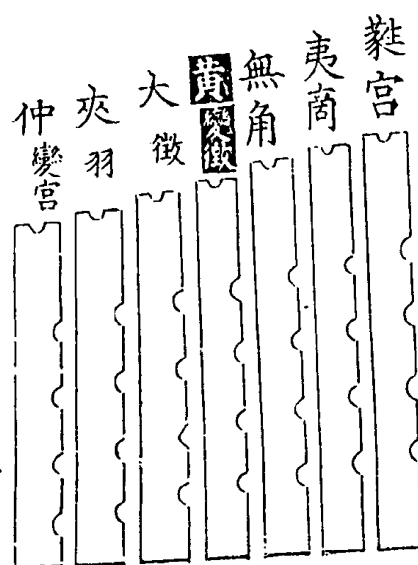 蕤宫
夷商
無角
黄變徵
大徵
夾羽
仲變宫